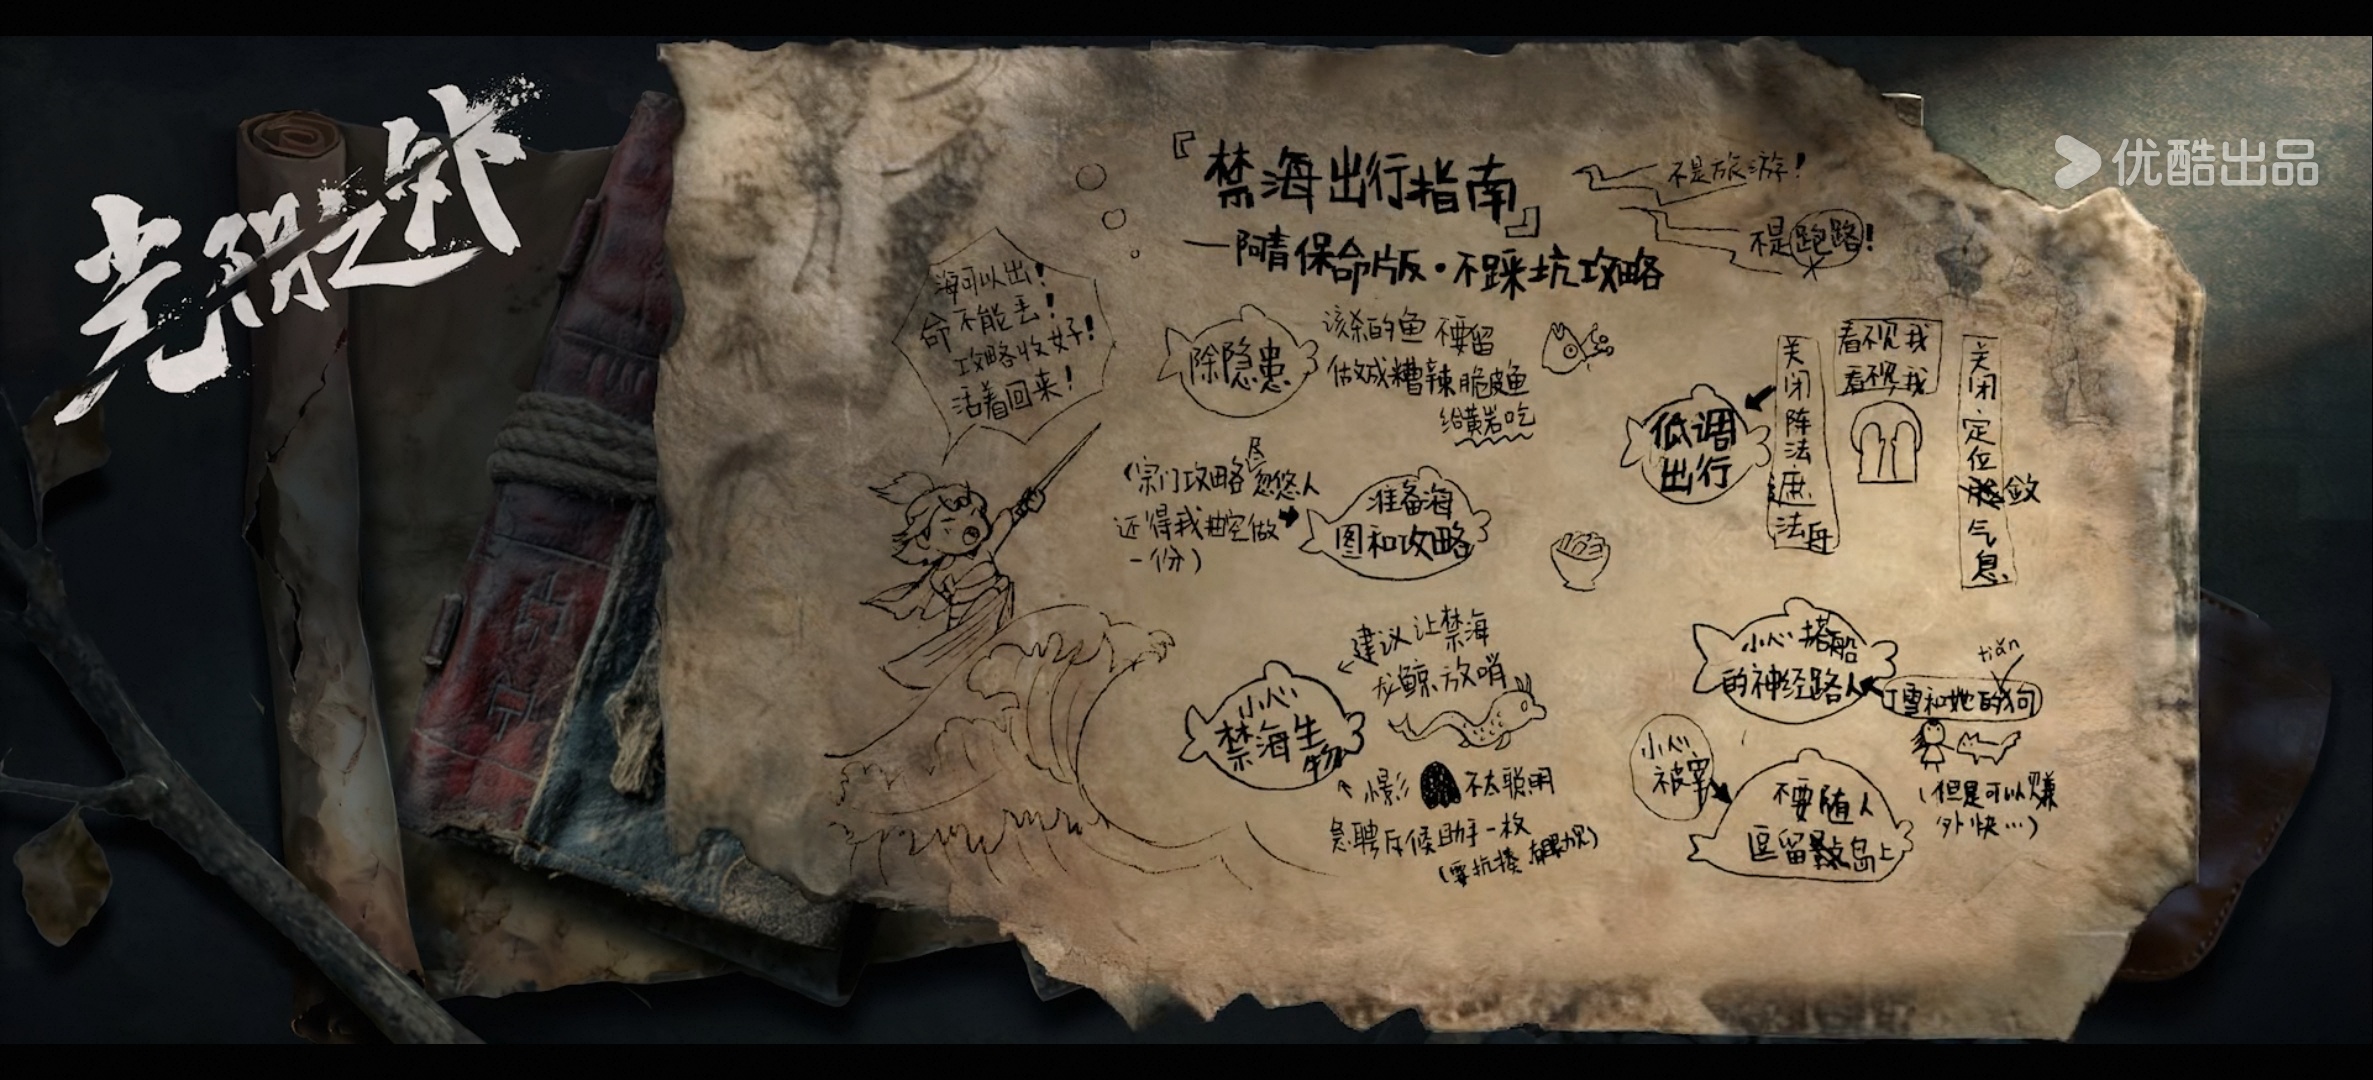 光阴之外
优酷出品
『禁海出行指南』
—阿青保命版·不踩坑攻略
不是旅游!
不是跑路!
海可以出!
命不能丢!
攻略收好!
活着回来!
除隐患
该杀的鱼 不要留
做成糟辣脆皮鱼
给黄岩吃
(宗门攻略尽忽悠人
还得我抽空做
一份)
准备海
图和攻略
低调
出行
关闭阵法
法舟
看不见我
看不见我
关闭定位敛气息
小心
禁海生物
建议让禁海
龙鲸放哨
影 不太聪明
急聘斥候助手一枚
(要抗揍
小心搭船
的神经路人
丁雪和她的狗
tiǎn
(但是可以赚
外快…)
小心
被宰
不要随人
逗留岛上